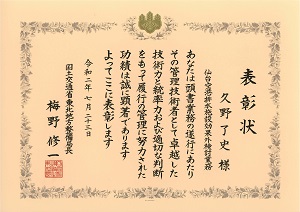 表彰状
仙台空港排水施設効果外検討業務
久野了史 様
あなたは頭書業務の遂行にあたり
その管理技術者として卓越した
技術力と統率力および適切な判断
をもって履行の管理に努力された
功績は誠に顕著であります
よってここに表彰します
令和二年七月二十三日
国土交通省東北地方整備局長
梅野修